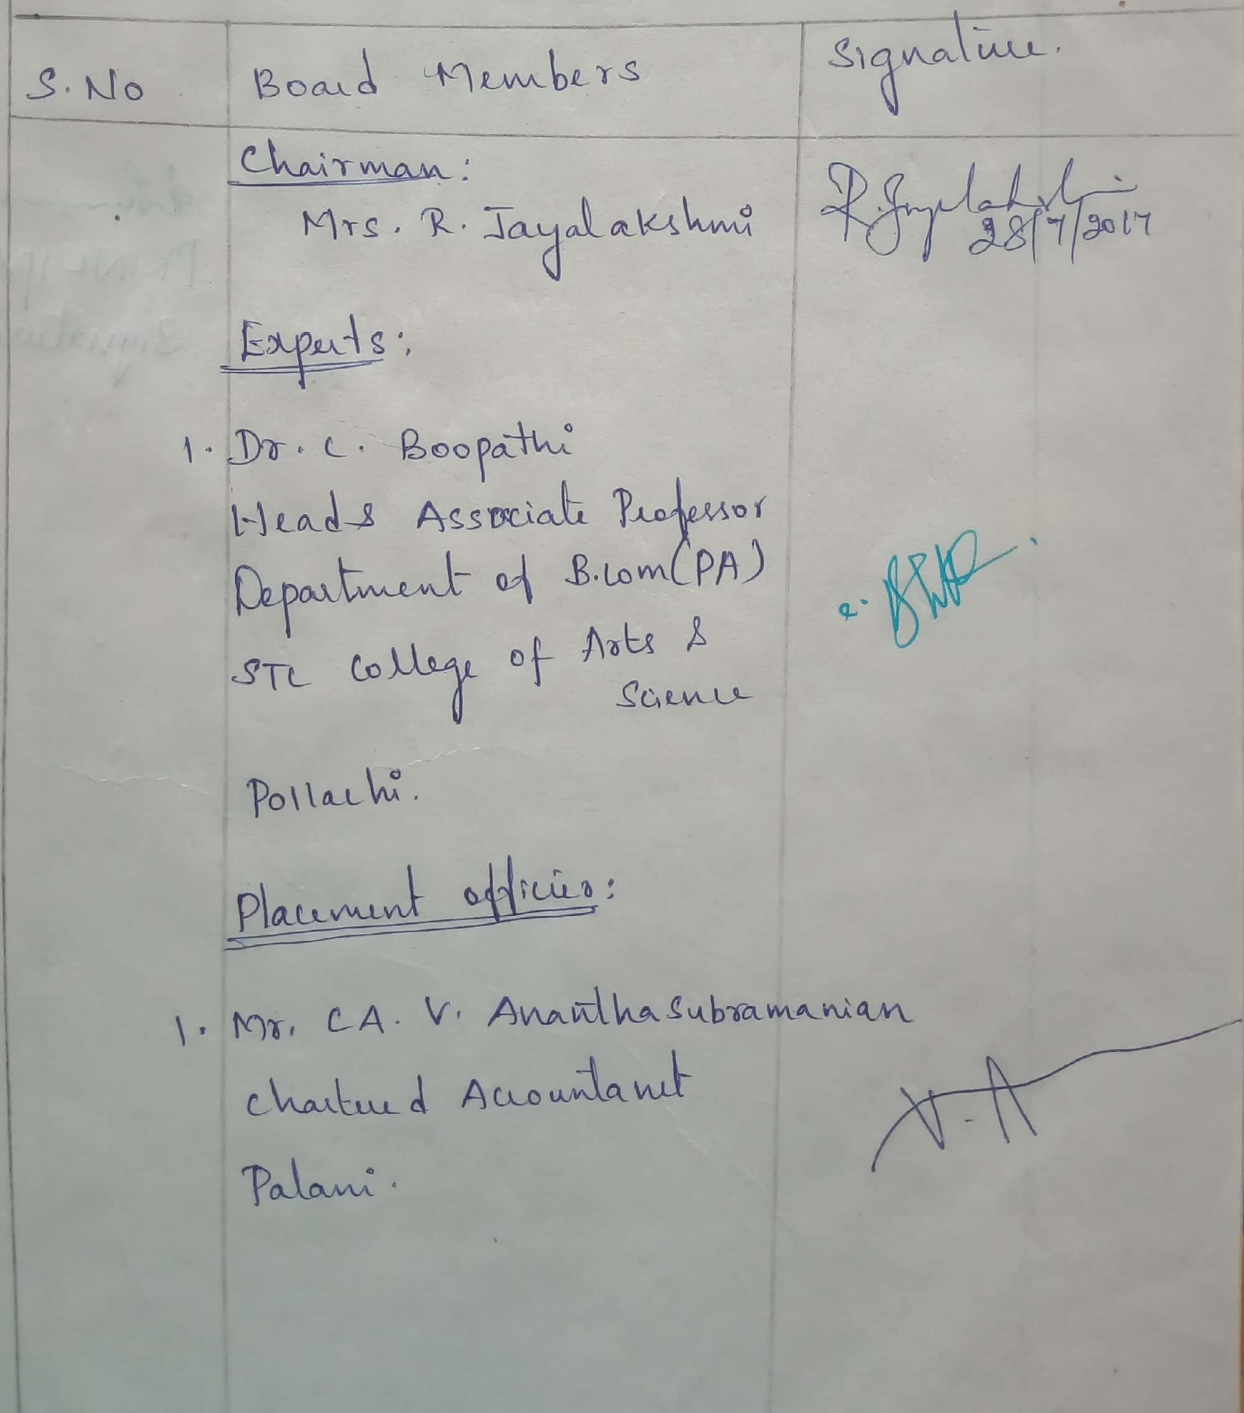 S.No Board Members Signature.
Chairman:
Mrs. R. Jayalakshmi R. Jayalakshmi
28/7/2017
Experts:
1. Dr. C. Boopathi
Head & Associate Professor
Department of B.Com(PA)
STC College of Arts &
Science
Pollachi.
Placement officier:
1. Mr. CA. V. Ananthasubramanian
Chartered Accountanet
V. A
Palani.